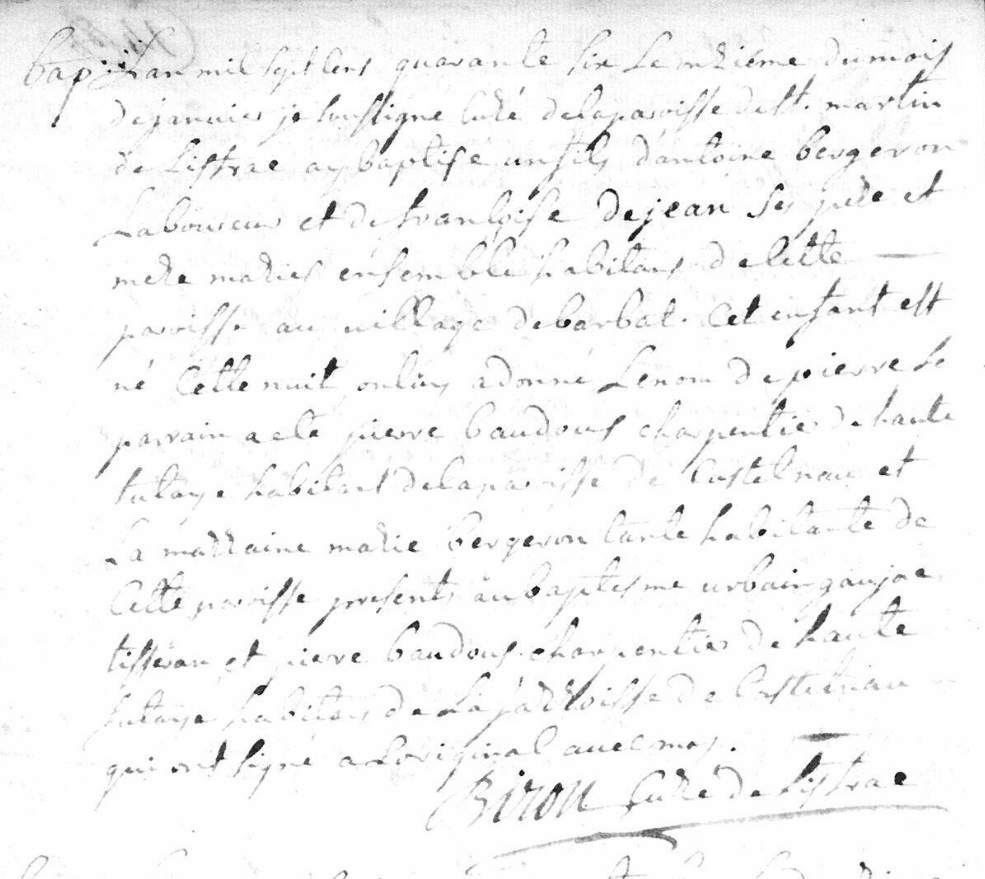 bap: L'an mil sept cens quarante six le onzieme du mois
de janvier je soussigné curé de la paroisse de st. martin
de Listrac ay baptise un fils d'antoine bergeron
Laboureur et de françoise dejean ses pere et
mere mariés ensemble habitans de cette
paroisse au village de barbat. Cet enfant est
né Cette nuit on luy a donné Le nom de pierre Le
parrain a ete pierre baudous charpentier de haute
futaye habitant de la paroisse de Castelnau et
La marraine marie bergeron tante habitante de
Cette paroisse presents au baptesme urbain gaujac
tisseran et pierre baudous charpentier de haute
futaye habitans de La parroisse de Castelnau
qui ont signe a Loriginal avec moy.
Biron Curé de Listrac